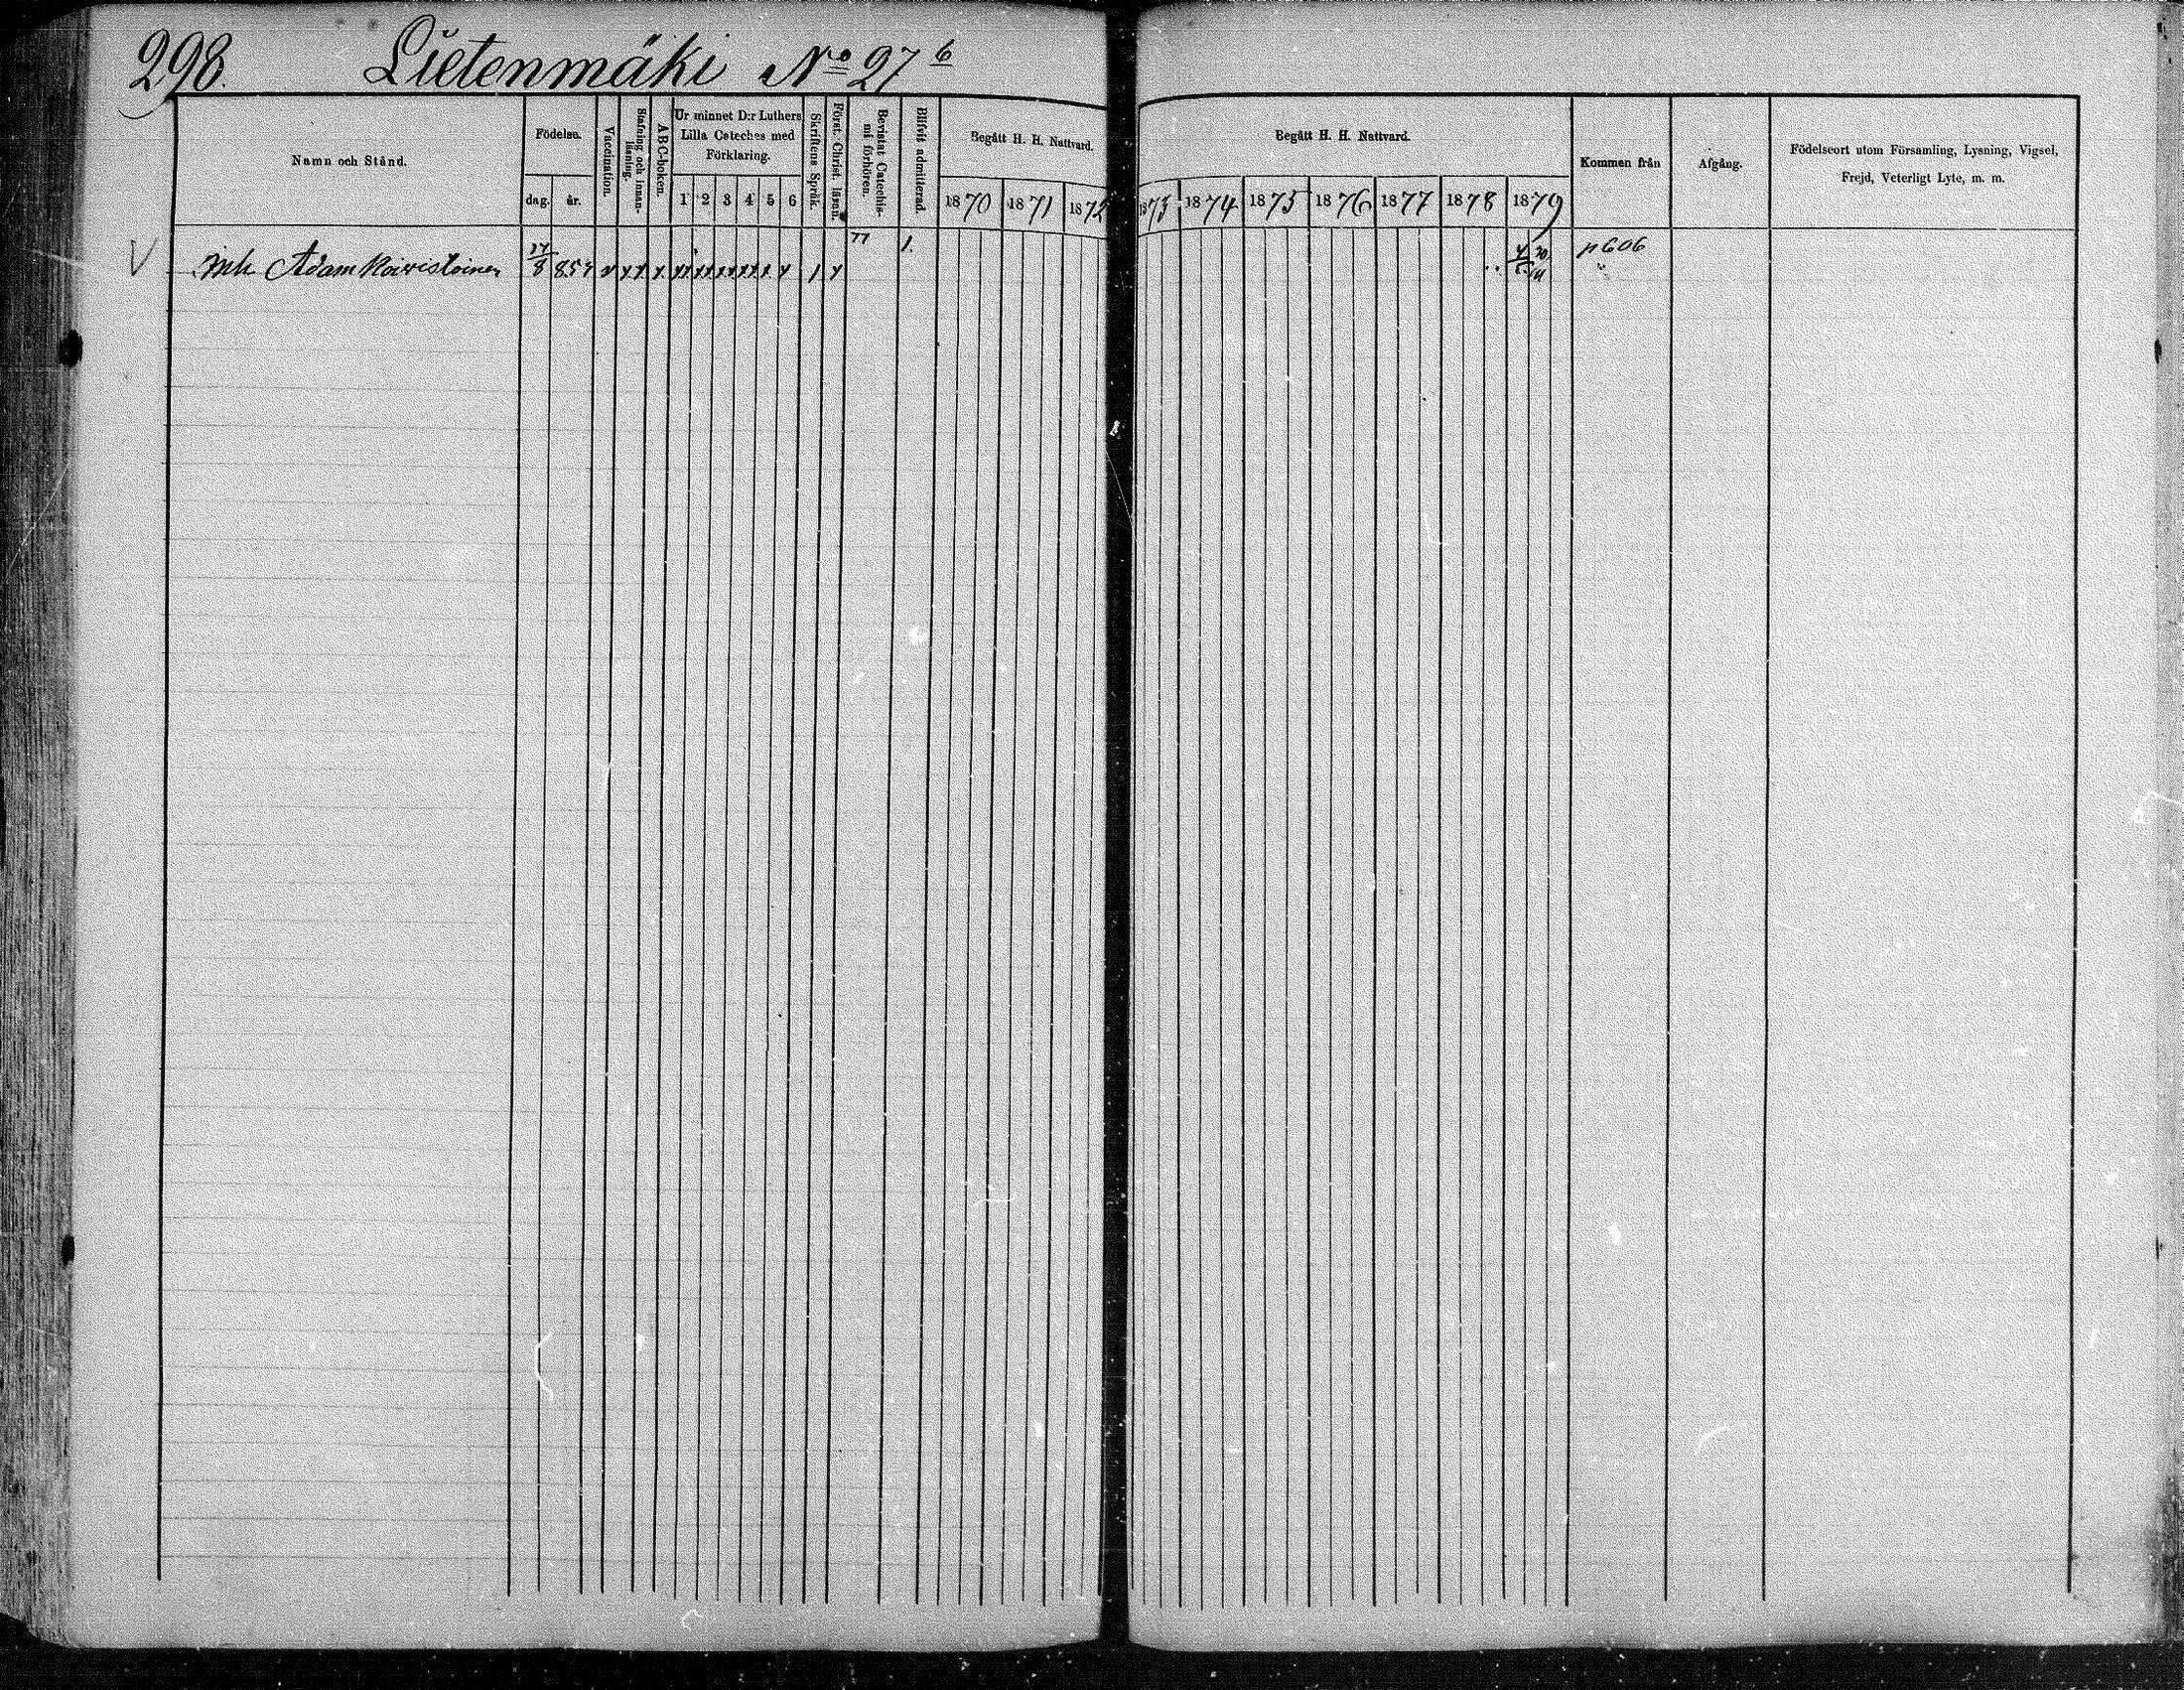 298. Lietenmäki No 27 b
Namn och Stånd.
Födelse.
dag.
år.
Vaccination.
Stafning och innanläsning.
ABC-boken.
Ur minnet D:r Luthers
Lilla Cateches med
Förklaring.
1 2 3 4 5 6
Skriftens Språk.
Först. Christ. läran.
Bevistat Catechismi förhören.
Blifvit admitterad.
Begått H. H. Nattvard.
1870 1871 1872
Begått H. H. Nattvard.
1873 1874 1875 1876 1877 1878 1879
Kommen från
Afgång.
Födelseort utom Församling, Lysning, Vigsel,
Frejd, Veterligt Lyte, m. m.
Adam Koivistoinen 77 1. p 606